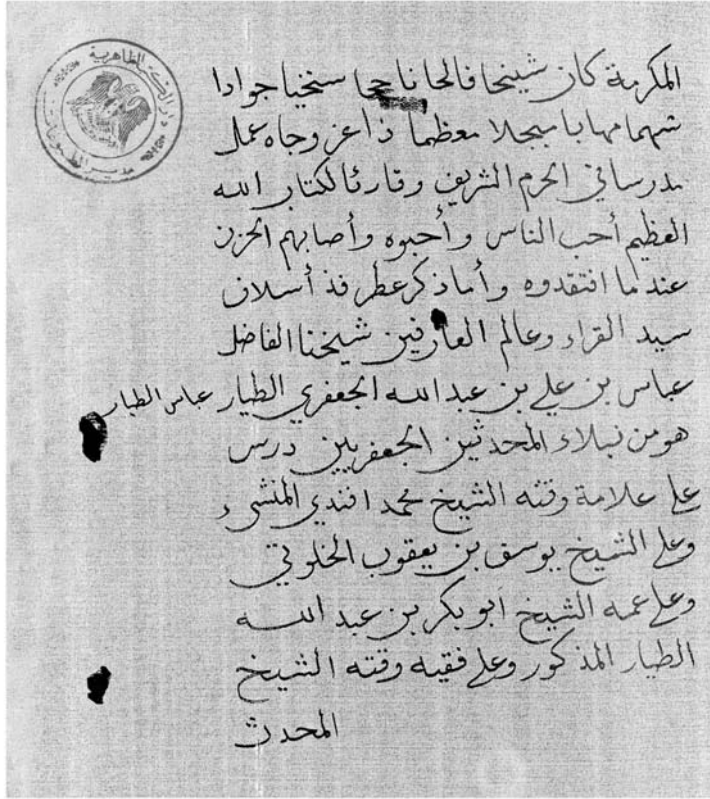 دار الكتب الظاهرية
مدير المخطوطات
المكرمة كان شيخا فالحا ناجحا سخيا جوادا
شهما مهابا مبجلا معظما ذا عز وجاه عمل
مدرسا في الحرم الشريف وقارئا لكتاب الله
العظيم أحب الناس وأحبوه وأصابهم الحزن
عندما افتقدوه وأما ذكر عطر فذ أسلاف
سيد القراء وعالم العارفين شيخنا الفاضل
عباس بن علي بن عبد الله الجعفري الطيار عباس الطيار
هو من نبلاء المحدثين الجعفريين درس
على علامة وقته الشيخ محمد افندي المنشىء
وعلى الشيخ يوسف بن يعقوب الخلوتي
وعلى عمه الشيخ ابو بكر بن عبد الله
الطيار المذكور وعلى فقيه وقته الشيخ
المحدث